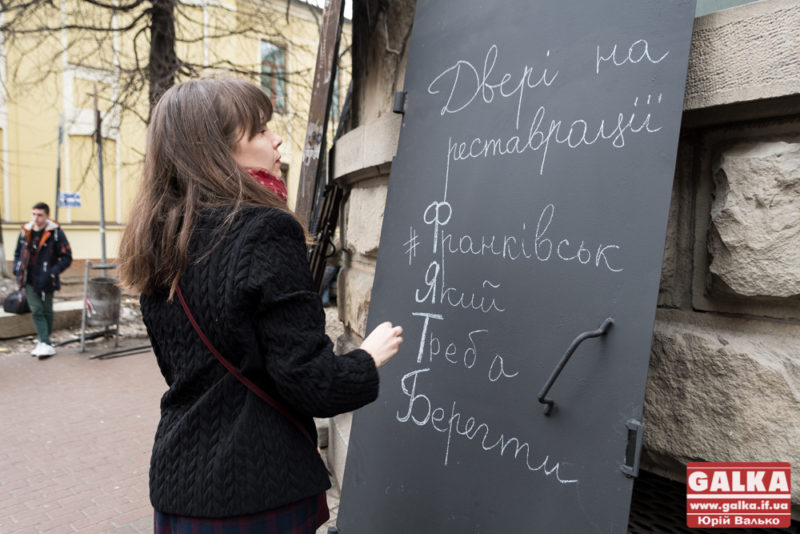 Двері на
реставрації
#Франківськ
Який
Треба
Берегти
GALKA
www.galka.if.ua
Юрій Валько